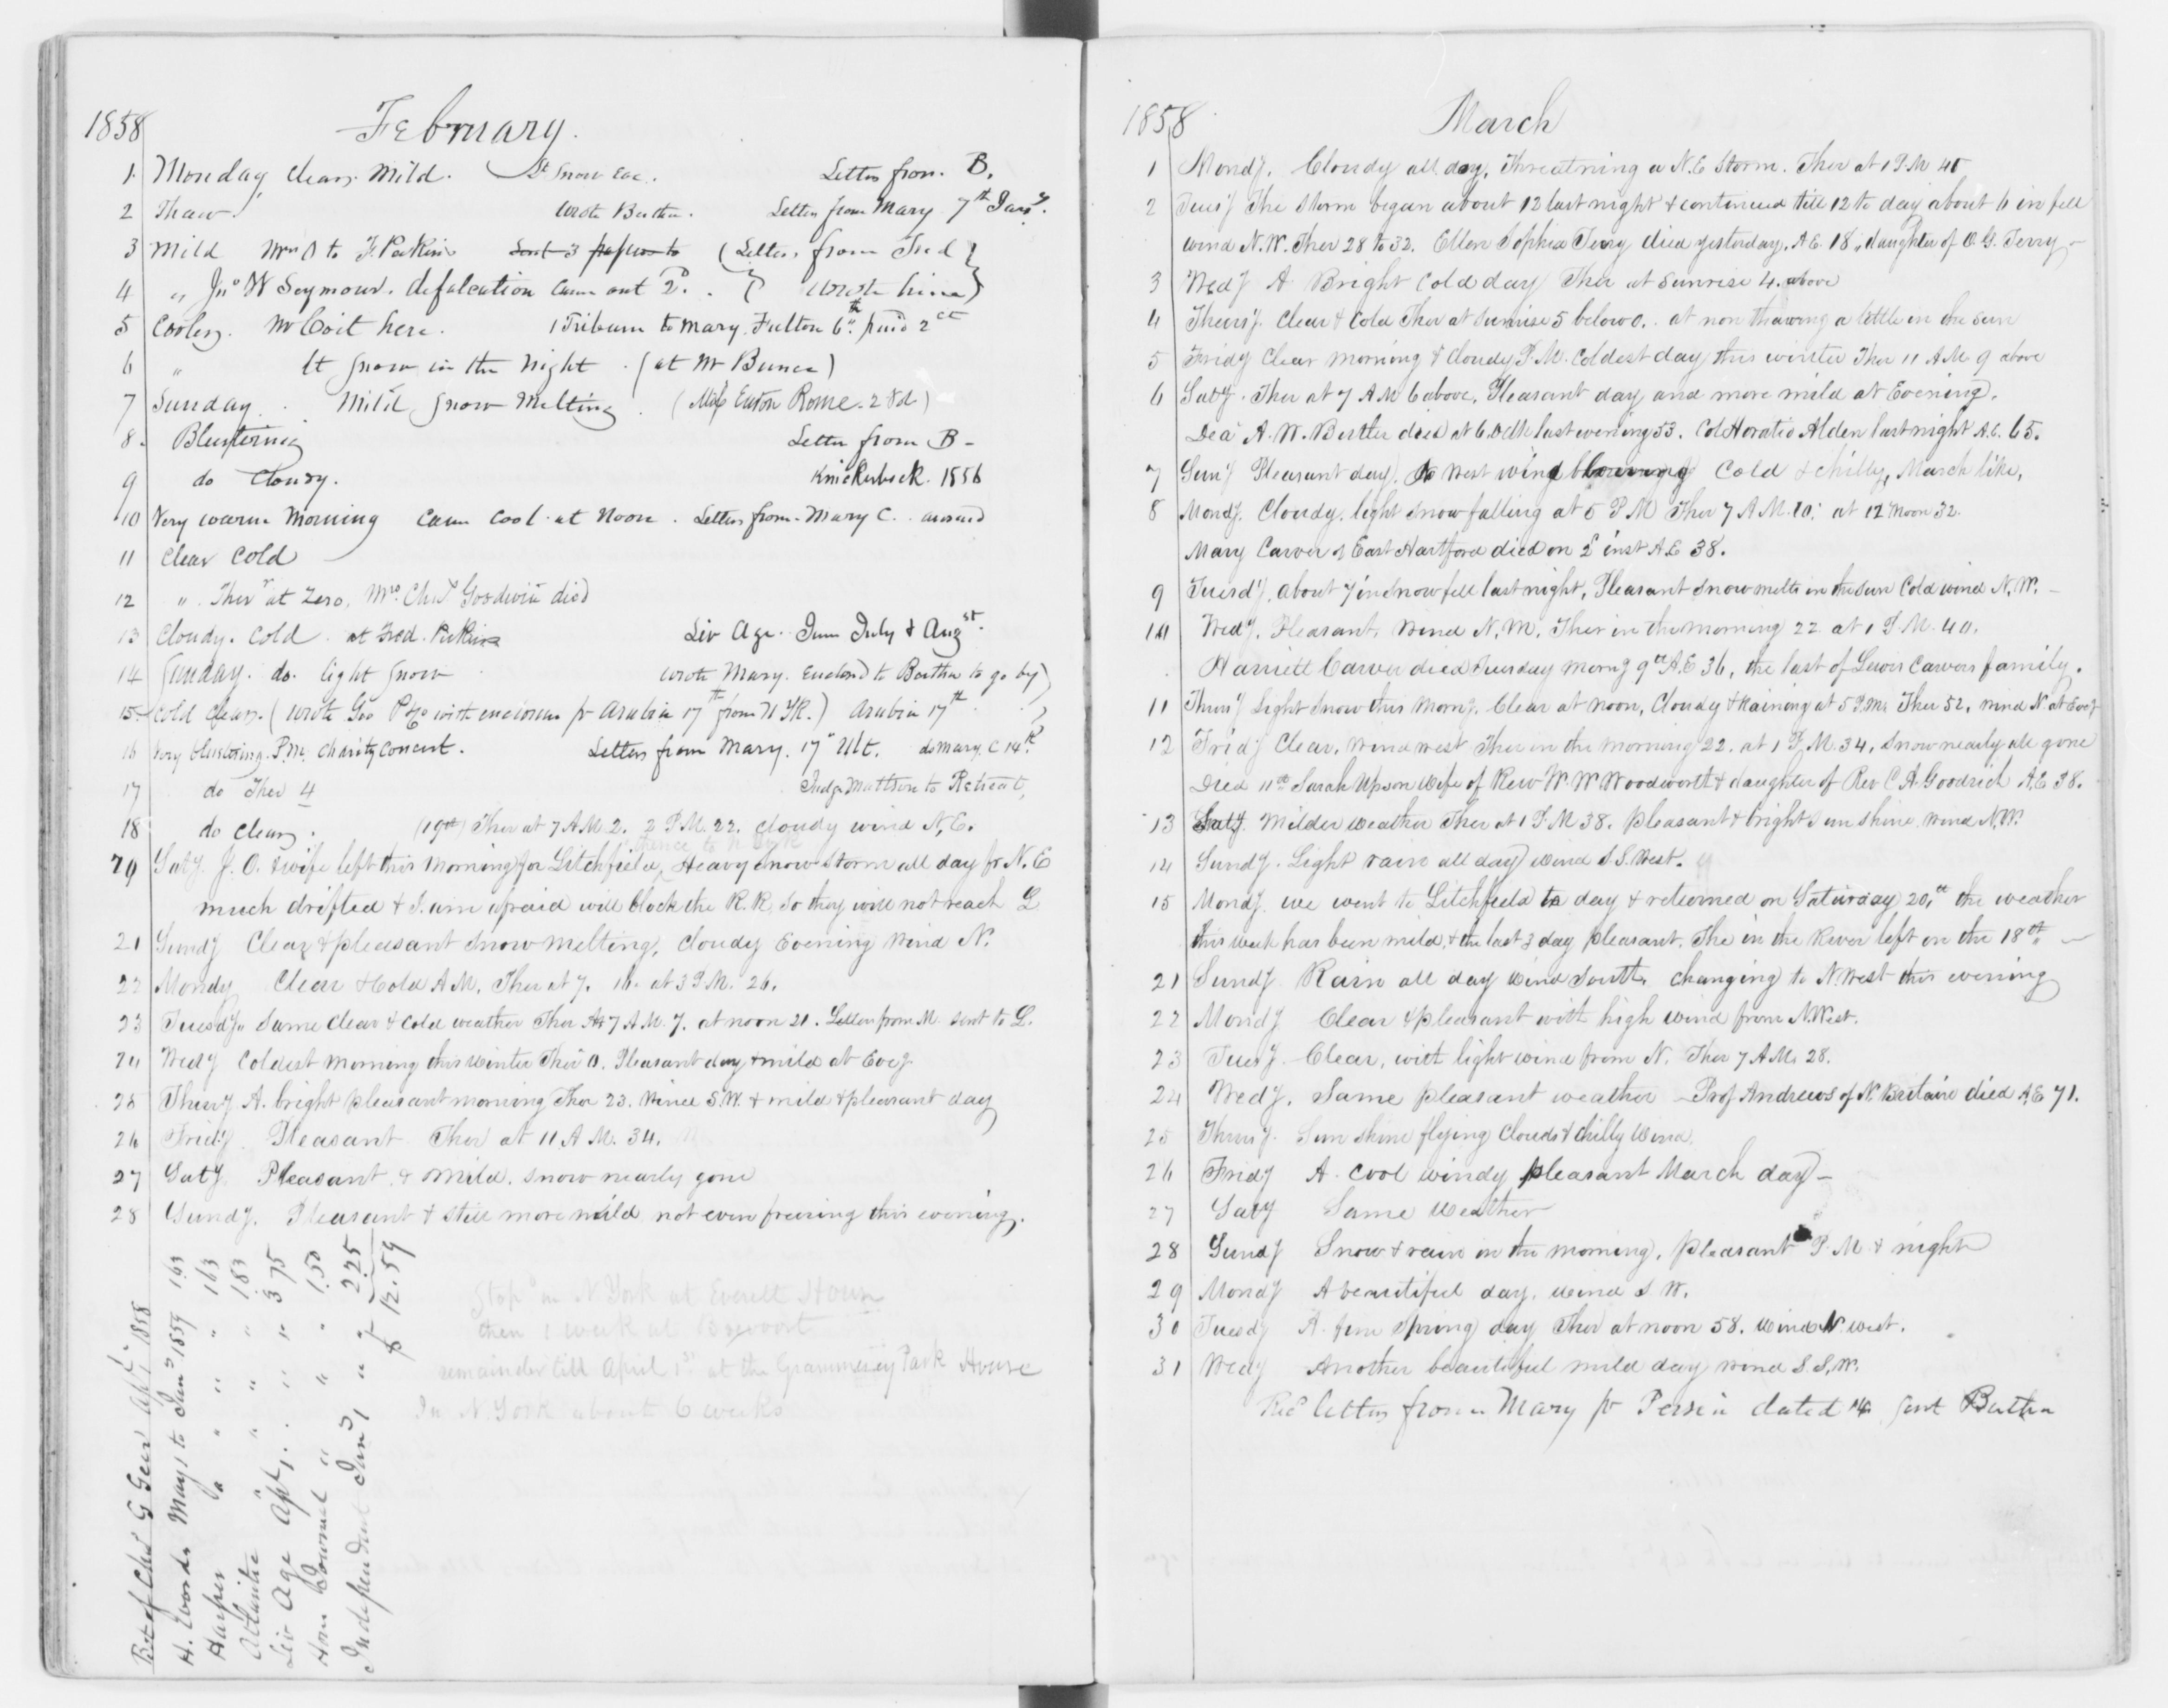 1858 February.
1 Monday clear. Mild. Lt Snow Eve. Letter from B.
2 Thaw. Wrote Bertha. Letter from Mary 7th Jany.
3 Mild Wm O to F. Perkins Sent 3 papers to (Letter from Fred)
4 " Jno W Seymour. defalcation came out 2d. (Wrote him)
5 Cooler. Mr Coit here. 1 Tribune to Mary Fulton 6th paid 2ct
6 " Lt snow in the night. (at Mr Bunce)
7 Sunday. Mild snow melting. (Easton Rome. 28d)
8. Blustering Letter from B-
9 do Cloudy. Knickerbock. 1856
10 Very warm morning came cool at noon. Letter from Mary C.
11 Clear cold
12 " Ther at Zero. Mrs Chs Goodwin died
13 Cloudy. cold. at Fred. Perkins Liv Age. June July & Augst.
14 Sunday. do. light snow wrote Mary. Enclosd to Bertha to go by)
15 Cold clear. (wrote Geo P with enclosure pr Arabia 17th from N YK.) Arabia 17th
16 Very blustering. P.M. Charity Concert. Letters from Mary. 17" Ult. do Mary. C 14th
17 do Ther 4 Judge Mattson to Retreat,
18 do clear. (19th) Ther at 7 A M 2. 2 P.M. 22. cloudy wind N,E.
hence to N York
20 Saty. J. O. & wife left this morning for Litchfield, Heavy snow storm all day fr N. E
much drifted & I am afraid will block the R.R. so they will not reach L
21 Sundy Clear & pleasant snow melting, cloudy Evening wind N.
22 Mondy Clear & Cold A M. Ther at 7. 16. at 3 P.M. 26.
23 Tuesdy. Same clear & cold weather Ther At 7 A.M. 7. at noon 21. Letter from M. sent to L.
24 Wedy Coldest morning this winter Ther 0. Pleasant day & mild at Eveg
25 Thursy A. bright pleasant morning Ther 23. Wind S.W. & mild & pleasant day
26 Fridy. Pleasant Ther at 11 A M. 34.
27 Saty. Pleasant & mild. snow nearly gone
28 Sundy. Pleasant & still more mild not even freezing this evening.
Stop'd in N York at Everett House
then 1 week at Brevoort
remainder till April 1st at the Grammercy Park House
In N. York about 6 weeks
Bot of Chs G Geer Apl. 1, 1858
H. Words May 1 to Jany 1859 163
Harper " " " 163
Atlantic " " " 1.83
Liv Age Apl 1. " " 3 75
Hom Journal " " " 1.50
Independent Jany 1 " " 2.25
$ 12.59
1858 March
1 Mondy. Cloudy all day, Threatning a N.E Storm. Ther at 1 P.M 40
2 Tuesy The Storm began about 12 last night & continued till 12 to day about 6 in fell
wind N.W. Ther 28 to 32. Ellen Sophia Terry died yesterday, A.E. 18, daughter of O. G. Terry-
3 Wedy A Bright cold day Ther at Sunrise 4. above
4 Thursy. Clear & Cold Ther at Sunrise 5 below 0.. at noon thawing a little in the sun
5 Fridy Clear morning & cloudy P.M. Coldest day this winter Ther 11 A M 9 above
6 Saty. Ther at 7 A M 6 above, Pleasant day and more mild at Evening.
Dea A. W. Butler died at 6 oClk last evening 53. Col Horatio Alden last night A.E. 65.
7 Suny Pleasant day. West wind blowing Cold & chilly, March like,
8 Mondy. Cloudy. light snow falling at 5 P M Ther 7 A M. 10. at 12 Noon 32.
Mary Carver of East Hartford died on 2 inst A.E 38.
9 Tuesdy, about 7 in Snow fell last night, Pleasant snow melts in the sun Cold wind N, W. -
10 Wedy. Pleasant, wind N.W. Ther in the morning 22 at 1 P M. 40.
Harriett Carver died Tuesday morng 9th A.E 36, the last of Lewis Carvers family.
11 Thursy Light Snow this morng. Clear at noon, Cloudy & Raining at 5 P.M. Ther 52, wind N. at Eveg
12 Fridy Clear, Wind west Ther in the morning 22. at 1 P.M. 34, snow nearly all gone
Died 11th Sarah Upson Wife of Rev W. W. Woodworth & daughter of Rev C. A. Goodrich A.E 38.
13 Saty Milder weather Ther at 1 P M 38. pleasant & bright sun shine wind N,W.
14 Sundy. Light rain all day wind S S. West.
15 Mondy we went to Litchfield to day & returned on Saturday 20,th the weather
this week has been mild, & the last 3 day pleasant. The in the River left on the 18th. -
21 Sundy Rain all day wind South, changing to N. West this evening
22 Mondy Clear & pleasant with high wind from N. West.
23 Tuesy Clear, with light wind from N. Ther 7 A M. 28.
24 Wedy. Same pleasant weather - Prof Andrews of N. Britain died A,E 71.
25 Thursy. Sun shine flying Clouds & Chilly Wind,
26 Fridy A. cool windy pleasant March day-
27 Saty Same weather
28 Sundy Snow & rain in the morning, pleasant P. M & night
29 Mondy A beautiful day. wind S W.
30 Tuesdy A. fine spring day Ther at noon 58. wind N west.
31 Wedy Another beautiful mild day wind S. S,W.
Recd letter from Mary pr Persia dated 14. Sent Bertha